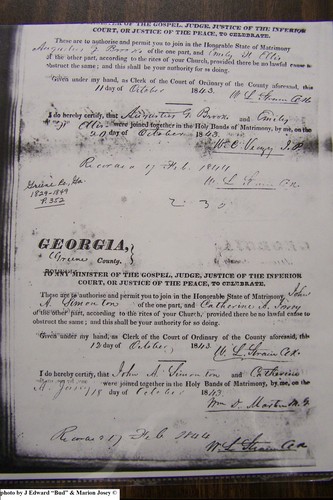 MINISTER OF THE GOSPEL, JUDGE, JUSTICE OF THE INFERIOR
COURT, OR JUSTICE OF THE PEACE, TO CELEBRATE.
These are to authorise and permit you to join in the Honorable State of Matrimony
Augustus G. Brooks of the one part, and Emily H Ellis
of the other part, according to the rites of your Church, provided there be no lawful cause to
obstruct the same; and this shall be your authority for so doing.
Given under my hand, as Clerk of the Court of Ordinary of the County aforesaid, this
11 day of October 1843.
W. L. Strain
I do hereby certify, that Augustus G. Brooks and Emily
H Ellis were joined together in the Holy Bands of Matrimony, by me, on the
day of October 1843.
J.P.
Recorded 17 Feb. 1844
W. L. Strain
Greene Co, Ga
1829-1849
P. 352
GEORGIA,
Greene County.
TO ANY MINISTER OF THE GOSPEL, JUDGE, JUSTICE OF THE INFERIOR
COURT, OR JUSTICE OF THE PEACE, TO CELEBRATE.
These are to authorise and permit you to join in the Honorable State of Matrimony John
A. Simonton of the one part, and Catherine A. Josey
of the other part, according to the rites of your Church, provided there be no lawful cause to
obstruct the same; and this shall be your authority for so doing.
Given under my hand, as Clerk of the Court of Ordinary of the County aforesaid, this
12 day of October, 1843.
W. L. Strain
I do hereby certify, that John A. Simonton and Catherine
A Josey were joined together in the Holy Bands of Matrimony, by me, on the
day of October 1843.
Wm D. Martin M. G.
Recorded 17 Feb 1844
W. L. Strain
photo by J Edward "Bud" & Marion Josey ©